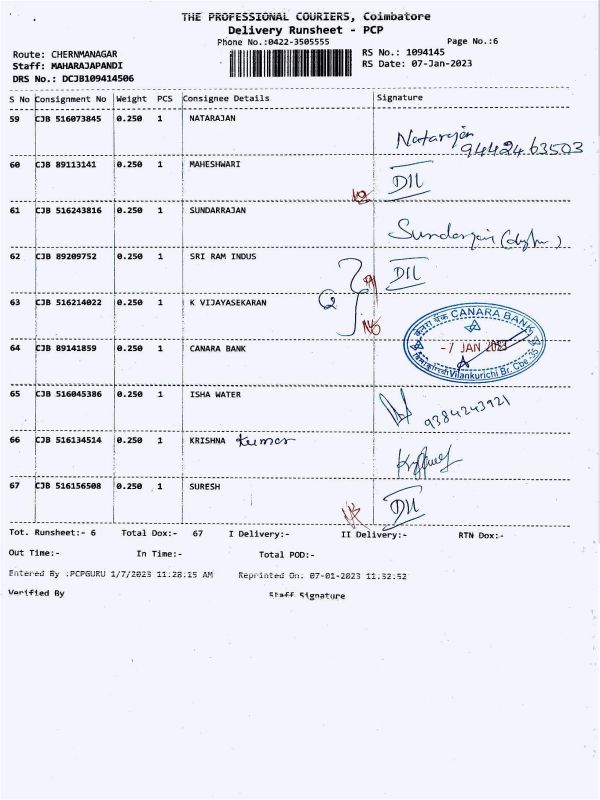 THE PROFESSIONAL COURIERS, Coimbatore
Delivery Runsheet - PCP
Phone No.:0422-3505555
Page No.:6
Route: CHERNMANAGAR
RS No.: 1094145
Staff: MAHARAJAPANDI
RS Date: 07-Jan-2023
DRS No.: DCJB109414506
S No Consignment No Weight PCS Consignee Details Signature
59 CJB 516073845 0.250 1 NATARAJAN
Natarajan
9442463503
60 CJB 89113141 0.250 1 MAHESHWARI
61 CJB 516243816 0.250 1 SUNDARRAJAN
62 CJB 89209752 0.250 1 SRI RAM INDUS
63 CJB 516214022 0.250 1 K VIJAYASEKARAN
CANARA BANK
-7 JAN 2023
Vilankurichi Br. Cbe-35
64 CJB 89141859 0.250 1 CANARA BANK
65 CJB 516045386 0.250 1 ISHA WATER
9384243921
66 CJB 516134514 0.250 1 KRISHNA Kumar
67 CJB 516156508 0.250 1 SURESH
Tot. Runsheet:- 6 Total Dox:- 67 I Delivery:- II Delivery:- RTN Dox:-
Out Time:- In Time:- Total POD:-
Entered By :PCPGURU 1/7/2023 11:28:15 AM Reprinted On: 07-01-2023 11:32:52
Verified By Staff Signature